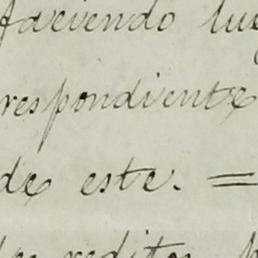 faciendo lue
respondiente
de este. =
los reditos, p